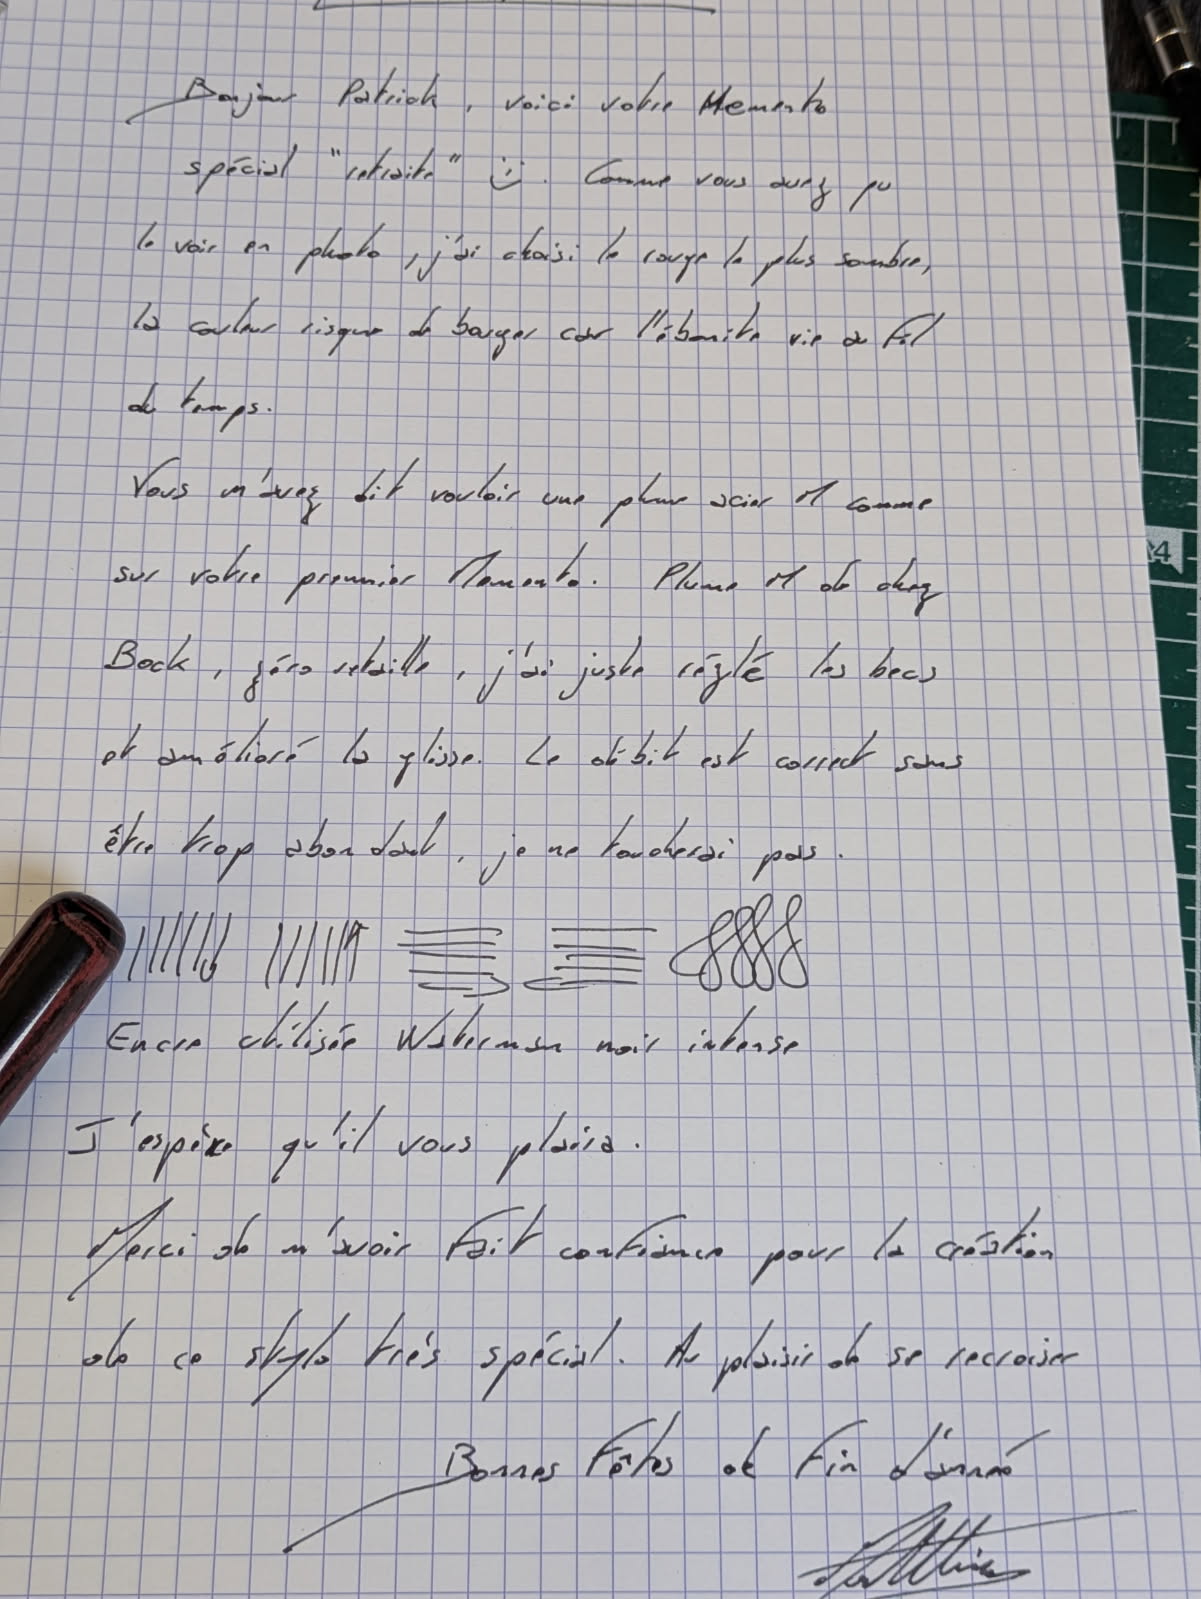 Bonjour Patrick, voici votre Memento
spécial "retraite" :). Comme vous avez pu
le voir en photo, j'ai choisi le rouge le plus sombre,
la couleur risque de bouger car l'ébonite vie au fil
du temps.
Vous m'avez dit vouloir une plume acier M comme
sur votre premier Memento. Plume M de chez
Bock, zéro retaille, j'ai juste réglé les becs
et amélioré la glisse. Le débit est correct sans
être trop abondant, je ne toucherai pas.
Encre utilisée Waterman noir intense
J'espère qu'il vous plaira.
Merci de m'avoir fait confiance pour la création
de ce stylo très spécial. Au plaisir de se recroiser
Bonnes Fêtes de Fin d'année
A4